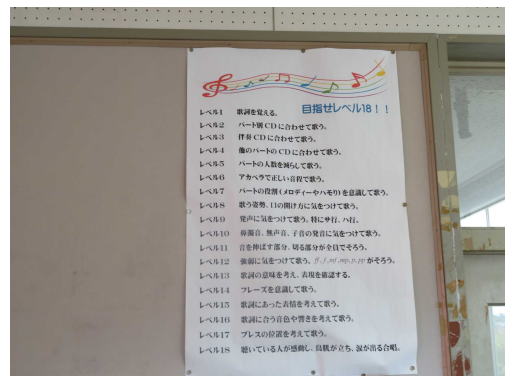 目指せレベル18！！
レベル1 歌詞を覚える。
レベル2 パート別CDに合わせて歌う。
レベル3 伴奏CDに合わせて歌う。
レベル4 他のパートのCDに合わせて歌う。
レベル5 パートの人数を減らして歌う。
レベル6 アカペラで正しい音程で歌う。
レベル7 パートの役割(メロディーやハモリ)を意識して歌う。
レベル8 歌う姿勢、口の開け方に気をつけて歌う。
レベル9 発声に気をつけて歌う。特にサ行、ハ行。
レベル10 鼻濁音、無声音、子音の発音に気をつけて歌う。
レベル11 音を伸ばす部分、切る部分が全員でそろう。
レベル12 強弱に気をつけて歌う。ff,f,mf,mp,p,ppがそろう。
レベル13 歌詞の意味を考え、表現を確認する。
レベル14 フレーズを意識して歌う。
レベル15 歌詞にあった表情を考えて歌う。
レベル16 歌詞に合う音色や響きを考えて歌う。
レベル17 ブレスの位置を考えて歌う。
レベル18 聴いている人が感動し、鳥肌が立ち、涙が出る合唱。